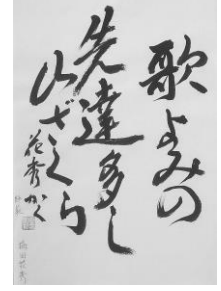 歌よみの
先達多し
山ざくら
花秀かく